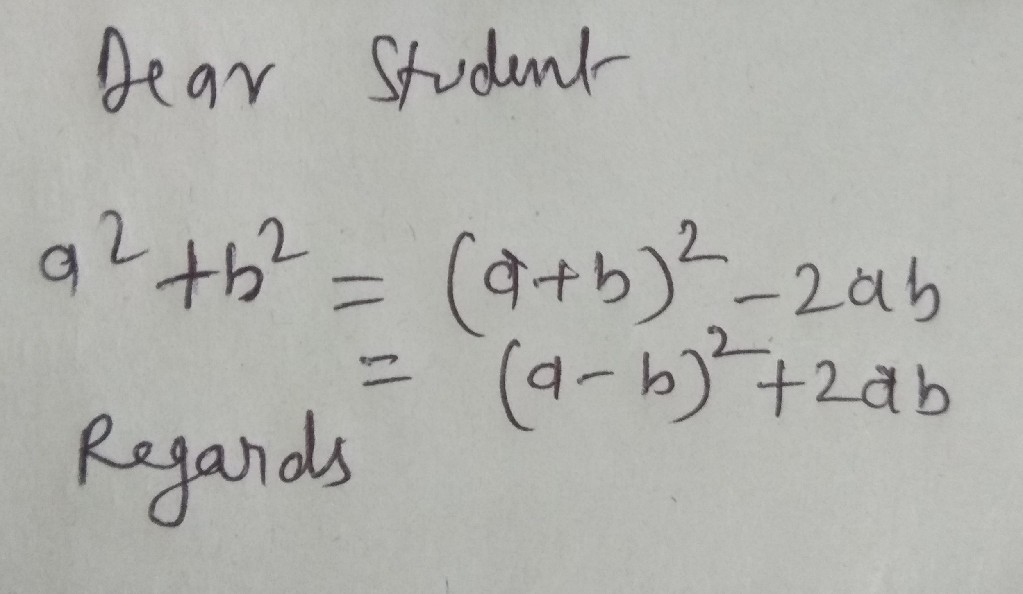 Dear Student
a² + b² = (a+b)² - 2ab
= (a-b)² + 2ab
Regards